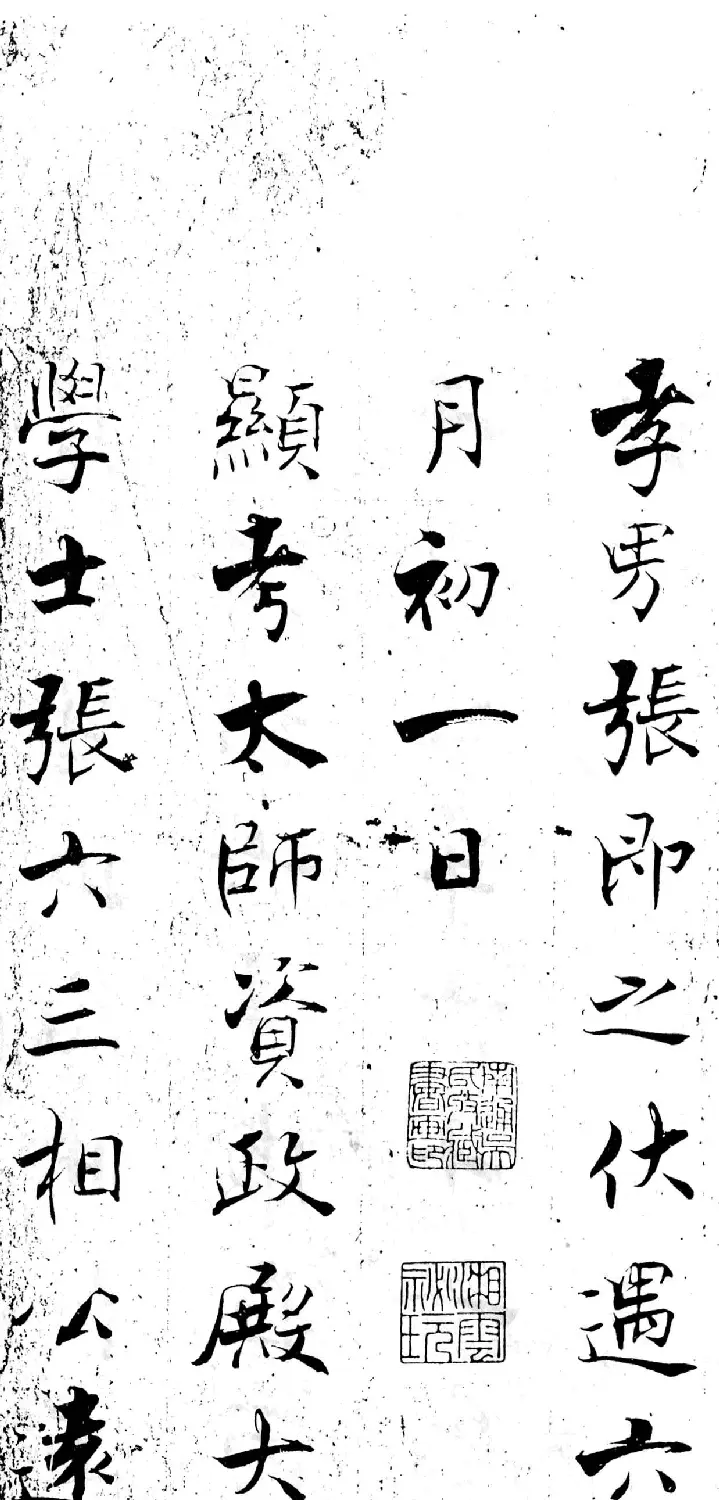 孝男張即之伏遇六
月初一日
湘雲秘玩
顯考太師資政殿大
學士張六三相公遠